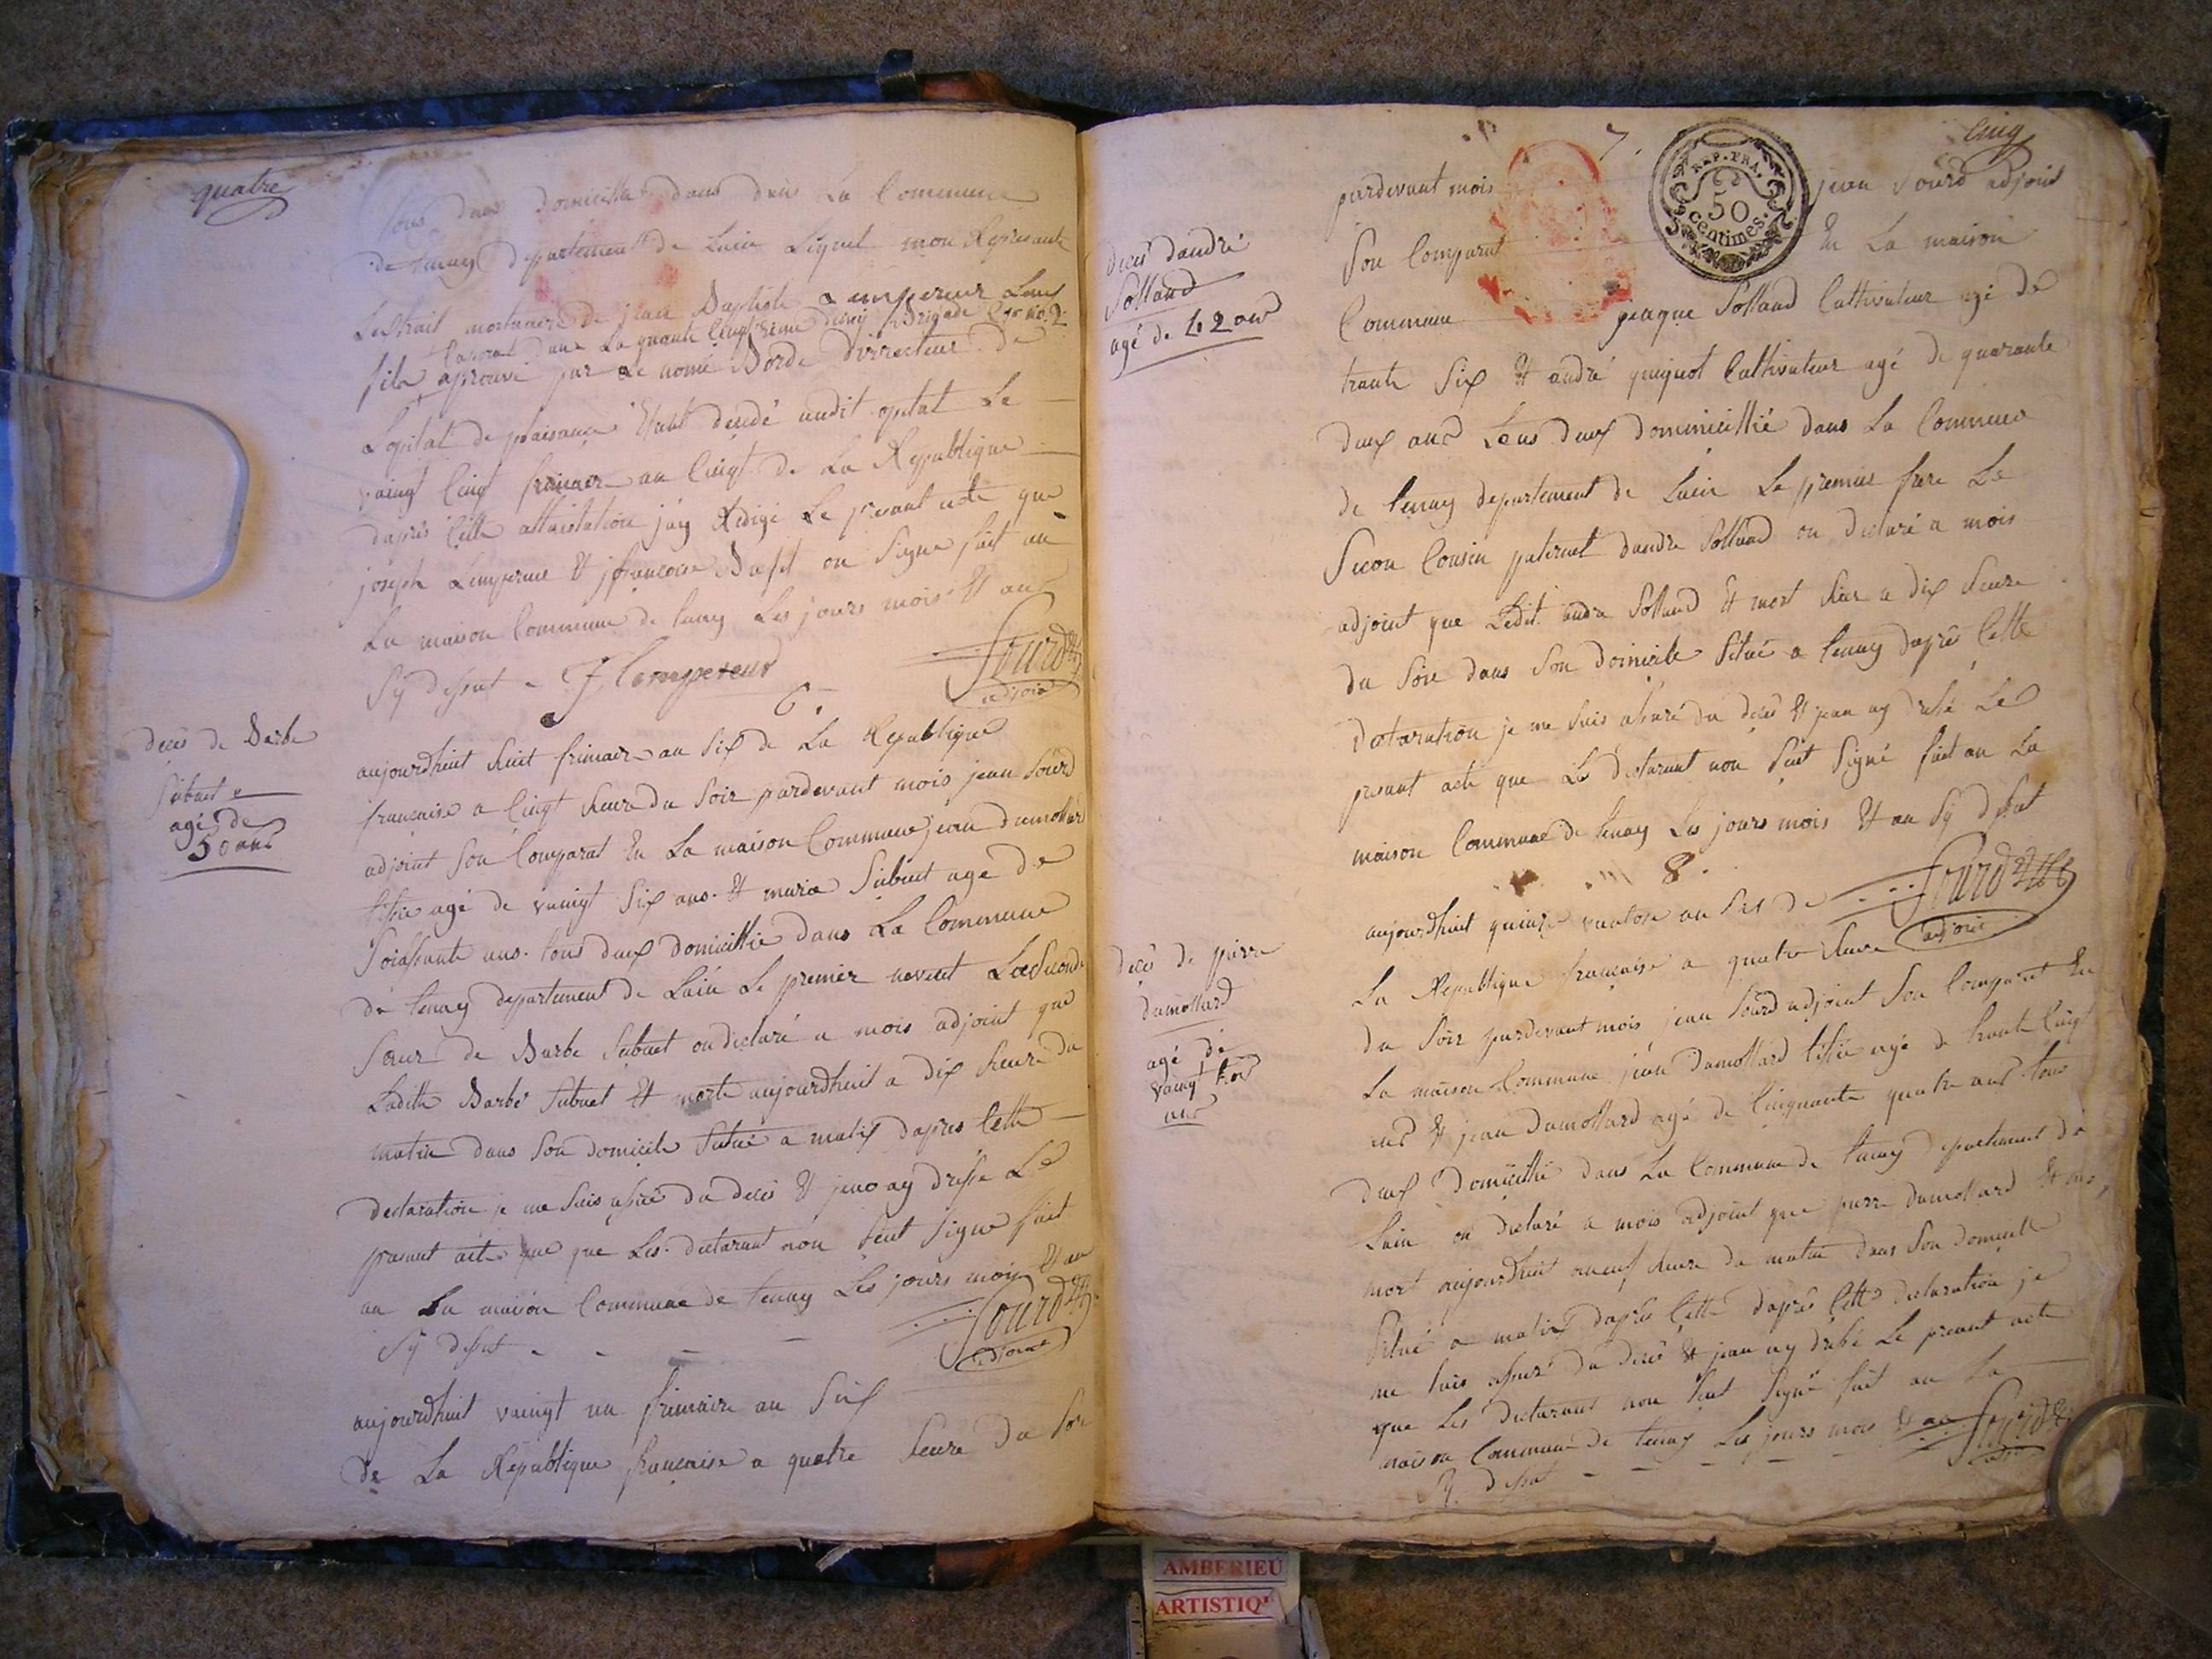 quatre
tous deux domicillié dans dans La Commune
de tenay departement de Lain Lequel mon Represanté
Lextrait mortuaire de jean Baptiste Lempereur Leur
Caporal dans La quarante Cinquieme demy Brigade
fils aprouvé par Le nomé Borde Dirrecteur de
Lopital de plaisance Etant décédé audit opital Le
vaingt Cinq frimaire an Cinqt de La Republique
dapres Cette attaistation jay Redigé Le presant acte que
joseph Lempereur Et francoise on Signe fait an
La maison Commune de tenay Les jours mois Et an
Sy dessut - J lempereur
Sourd
adjoint
6.
deces de Barbe
Subuet
agé de
50 ans
aujourdhuit huit frimaire an Six de La Republique
francaise a Cinqt heure du Soir pardevant mois jean Sourd
adjoint Son Comparut En La maison Commune jean dumollard
titié agé de vaingt Six ans. Et marie Subuet agé de
Soissante ans. tous deux domicillié dans La Commune
de tenay departement de Lain Le premier neveut La Seconde
Sœur de Barbe Subuet on declaré a mois adjoint que
Laditte Barbe Subuet Et morte aujourdhuit a dix heure du
matin dans Son domicile Situé a malix dapres Cette
declaration je me Suis assuré du deces Et jean ay dressé Le
presant acte que que Les declarant non Seut Signe fait
an La maison Commune de tenay Les jours mois Et an
Sy dessut - - -
Sourd
adjoint
aujourdhuit vaingt un frimaire an Six
de La Republique francaise a quatre heure du Soir
cinq
7.
REP. FRA.
50
centimes.
deces dandré
Solland
agé de 42 ans
pardevant mois jean Sourd adjoint
Son Comparut En La maison
Commune jeaque Solland Cultivateur agé de
trante Six Et andré Cultivateur agé de quarante
deux ans tous deux dommicillié dans La Commune
de tenay departement de Lain Le premier frere Le
Secon Cousin paternel dandre Solland on declaré a mois
adjoint que Ledit andre Solland Et mort hier a dix heure
du Soir dans Son domicile Situé a tenay dapres Cette
declaration je me Suis assuré du deces Et jean ay dressé Le
presant acte que Les declarant non Seut Signé fait an La
maison Commune de tenay Les jours mois Et an Sy dessut
Sourd
adjoint
8.
deces de pierre
dumollard
agé de
vaingt trois
ans
aujourdhuit quinze vantose an Six de
La Republique francaise a quatre heure
du Soir pardevant mois jean Sourd adjoint Son Comparut En
La maison Commune jean Dumollard titié agé de trante Cinqt
ans Et jean Dumollard agé de Cinquante quatre ans tous
deux Domicillié dans La Commune de tenay departement de
Lain on declaré a mois adjoint que pierre Dumollard Et
mort aujourdhuit a neuf heure du matin dans Son domicile
Situé a malix dapres Cette dapres Cette declaration je
me Suis assuré du deces Et jean ay dressé Le presant acte
que Les declarant non Seut Signé fait an La
maison Commune de tenay Les jours mois Et an
Sy dessut - - - - -
Sourd
adjoint
AMBERIEU
ARTISTIQ